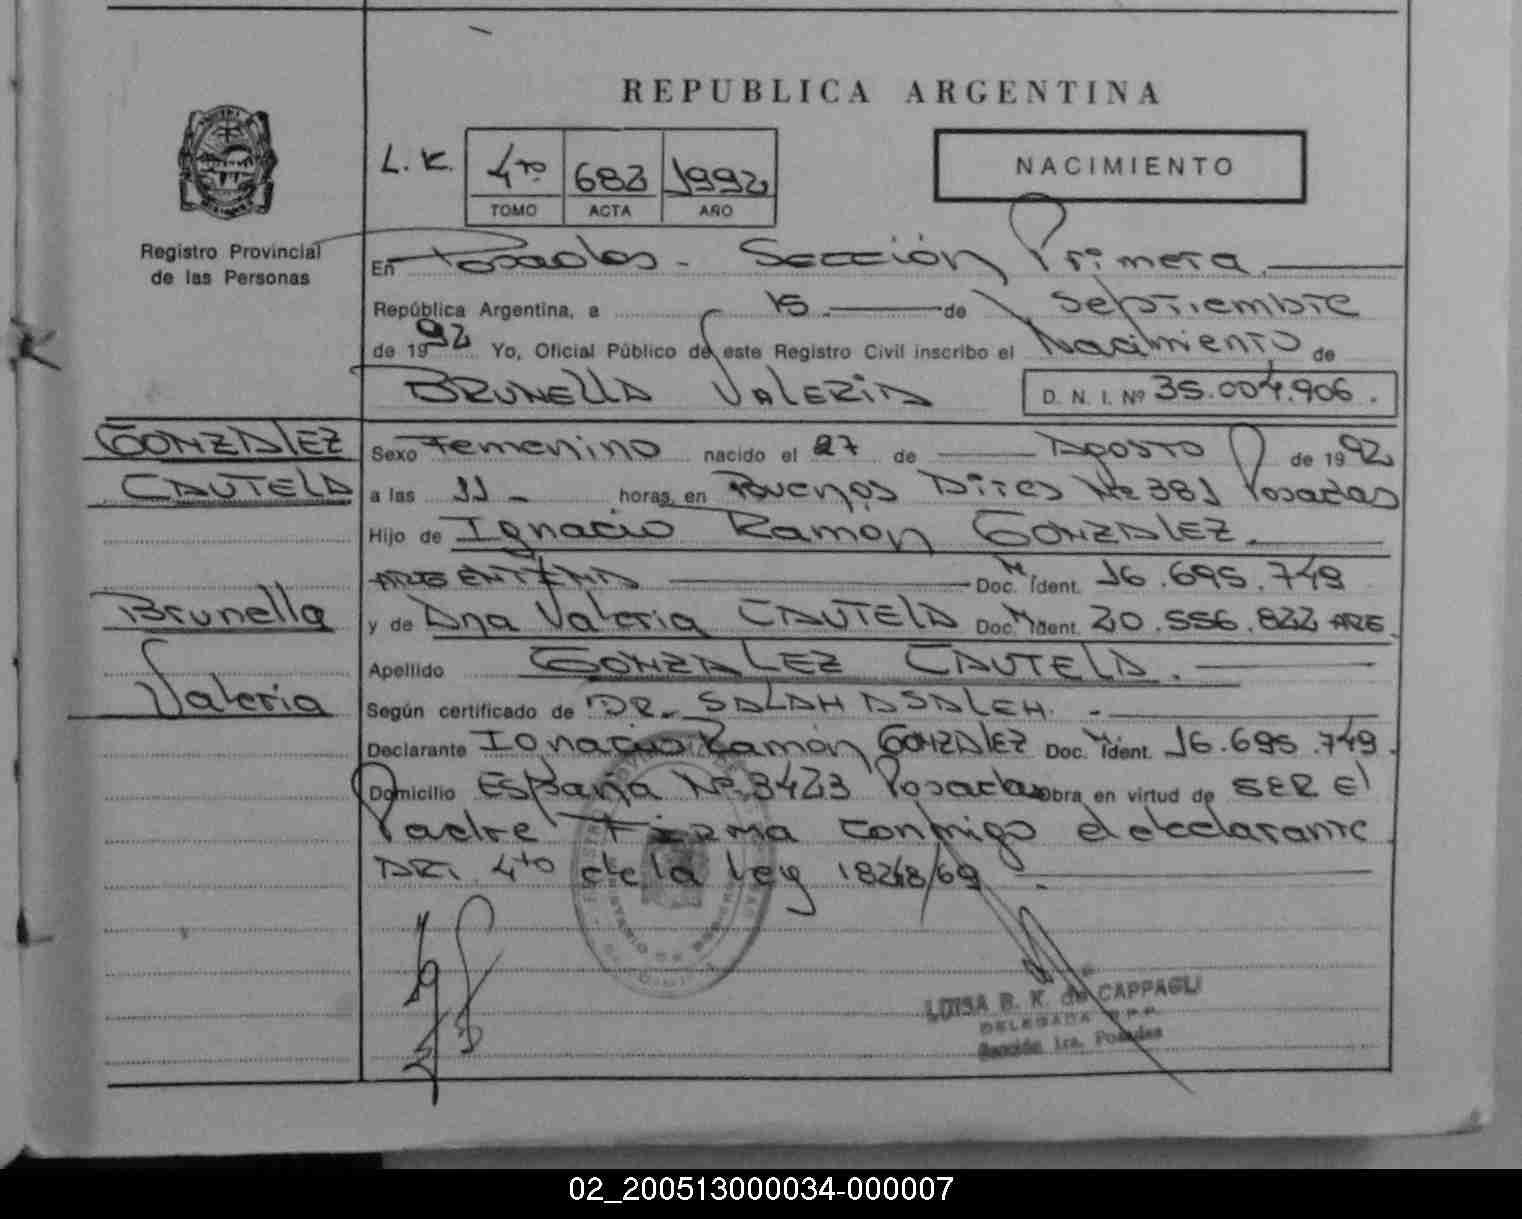 REPUBLICA ARGENTINA
NACIMIENTO
L. K. 4to 682 1992
TOMO ACTA AÑO
Registro Provincial
de las Personas
En Posadas - Sección Primera.
República Argentina, a 15 de Septiembre
de 1992 Yo, Oficial Público de este Registro Civil inscribo el Nacimiento de
BRUNELLA VALERIA D. N. I. Nº 35.004.906.
GONZALEZ
CAUTELA
Brunella
Valeria
Sexo Femenino nacido el 27 de Agosto de 1992
a las 11 - horas, en Buenos Aires Nº 381 Posadas
Hijo de Ignacio Ramón GONZALEZ.
ARGENTINA Doc. M. Ident. 16.695.749
y de Ana Valeria CAUTELA Doc. M. Ident. 20.556.822 ARG.
Apellido GONZALEZ CAUTELA.
Según certificado de DR. SALAH ASALEH. -
Declarante Ignacio Ramón GONZALEZ Doc. M. Ident. 16.695.749.
Domicilio España Nº 3423 Posadas Obra en virtud de SER El
Padre Firma conmigo el declarante
ART. 4to de la ley 18248/69.
LUISA B. K. de CAPPAGLI
DELEGADA R.P.P.
Sección 1ra. Posadas
02_200513000034-000007